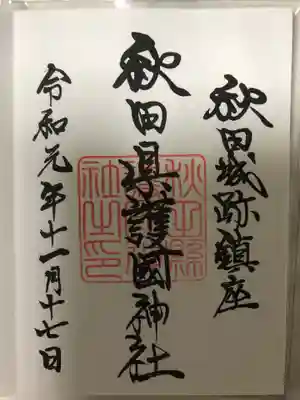 秋田城跡鎮座
秋田県護國神社
令和元年十一月十七日